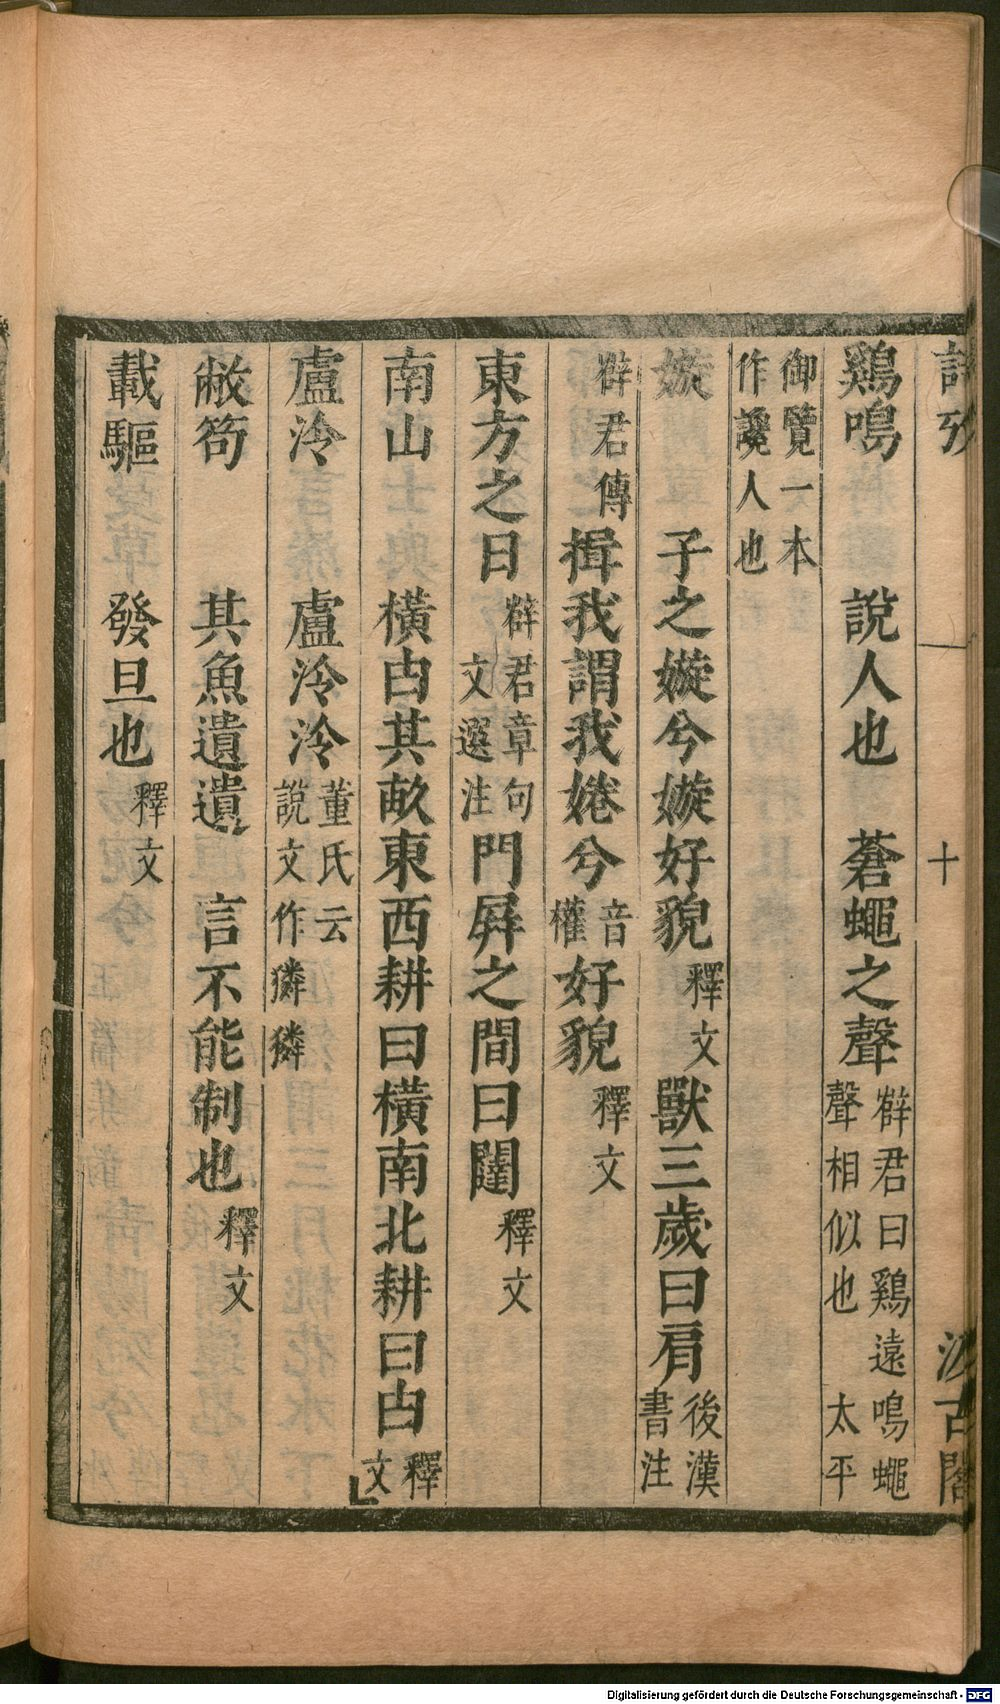 詩攷 十 汲古閣
鷄鳴 說人也 蒼蠅之聲 薛君曰鷄遠鳴蠅聲相似也 太平
御覽一本作讒人也
嫙 子之嫙兮嫙好貌 釋文 獸三歲曰肩 後漢書注
薛君傳 揖我謂我婘兮 音權 好貌 釋文
東方之日 薛君章句文選注 門屏之間曰闥 釋文
南山 橫由其畝東西耕曰橫南北耕曰由 釋文
盧泠 盧泠泠 董氏云說文作獜獜
敝笱 其魚遺遺 言不能制也 釋文
載驅 發旦也 釋文
Digitalisierung gefördert durch die Deutsche Forschungsgemeinschaft - DFG